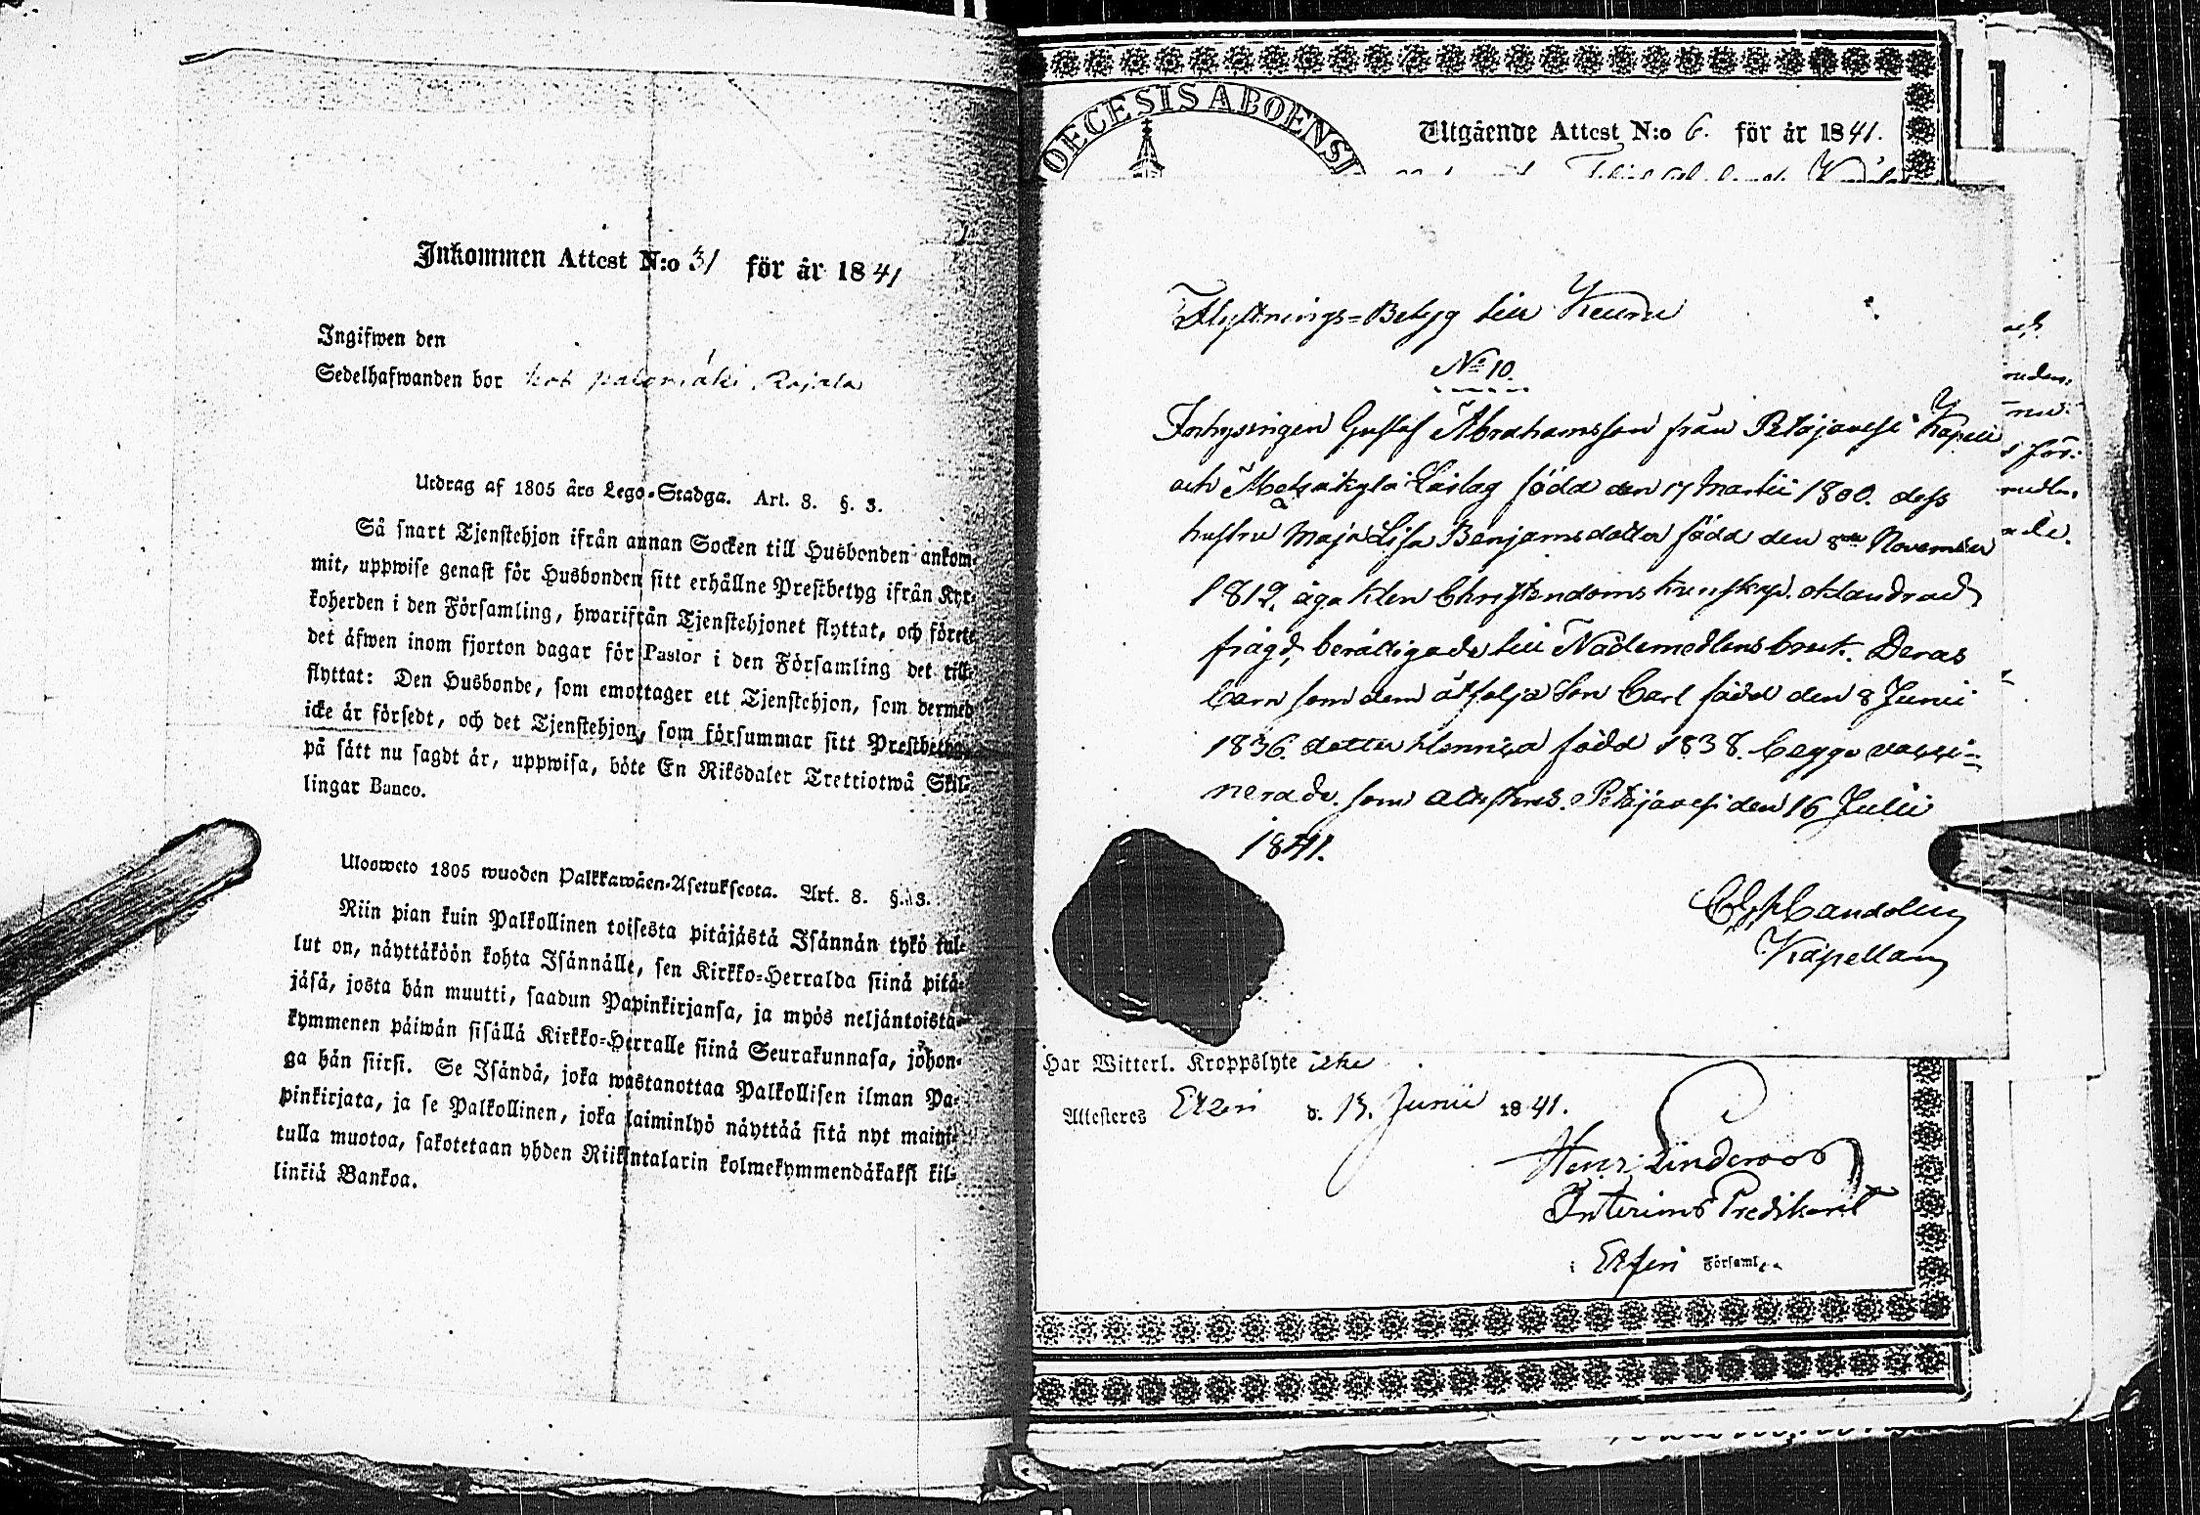 Inkommen Attest N:o 31 för år 1841
Ingifwen den
Sedelhafwanden bor Rajala
Utdrag af 1805 års Lego-Stadga. Art. 8. §. 3.
Så snart Tjenstehjon ifrån annan Socken till Husbonden ankom-
mit, uppwise genast för Husbonden sitt erhållne Prestbetyg ifrån Kyr-
koherden i den Församling, hwarifrån Tjenstehjonet flyttat, och förete
det äfwen inom fjorton dagar för Pastor i den Församling det till-
flyttat: Den Husbonde, som emottager ett Tjenstehjon, som dermed
icke är försedt, och det Tjenstehjon, som försummar sitt Prestbetyg,
på sätt nu sagdt är, uppwisa, böte En Riksdaler Trettiotwå Skil-
lingar Banco.
Ulosweto 1805 wuoden Palkkawäen-Asetuksesta. Art. 8. §. 3.
Niin pian kuin Palkollinen toisesta pitäjästä Isännän tykö tul-
lut on, näyttäköön kohta Isännälle, sen Kirkko-Herralda siinä pitä-
jäsä, josta hän muutti, saadun Papinkirjansa, ja myös neljäntoista-
kymmenen päiwän sisällä Kirkko-Herralle siinä Seurakunnasa, johon-
ga hän siirsi. Se Isändä, joka wastanottaa Palkollisen ilman Pa-
pinkirjata, ja se Palkollinen, joka laiminlyö näyttää sitä nyt maini-
tulla muotoa, sakotetaan yhden Riikintalarin kolmekymmendäkaksi kil-
linkiä Bankoa.
DIOECESIS ABOENSI
Utgående Attest N:o 6. för år 1841.
Flyttnings=Betyg till Keuru
No 10.
Inhysingen Gustaf Abrahamsson från Petäjävesi Kapell
och Metsäkylä Lästag född den 17 Martii 1800. dess
hustru Maja Lisa Benjamsdotter född den 8de November
1812. äga klen Christendoms kunskap. oklandrad
frägd, berättigade till Nådemedlens bruk. Deras
barn som dem åtfölja Son Carl född den 8 Junii
1836. dotter Henrica född 1838. begge vacci=
nerade. som attesteras. Petäjävesi den 16 Julii
1841.
Kapellan
Har Witterl. Kroppslyte icke
Attesteres Etzeri d. 13. Junii 1841.
Henr. Linderoos
Interims Predikant
i Etseri Församl